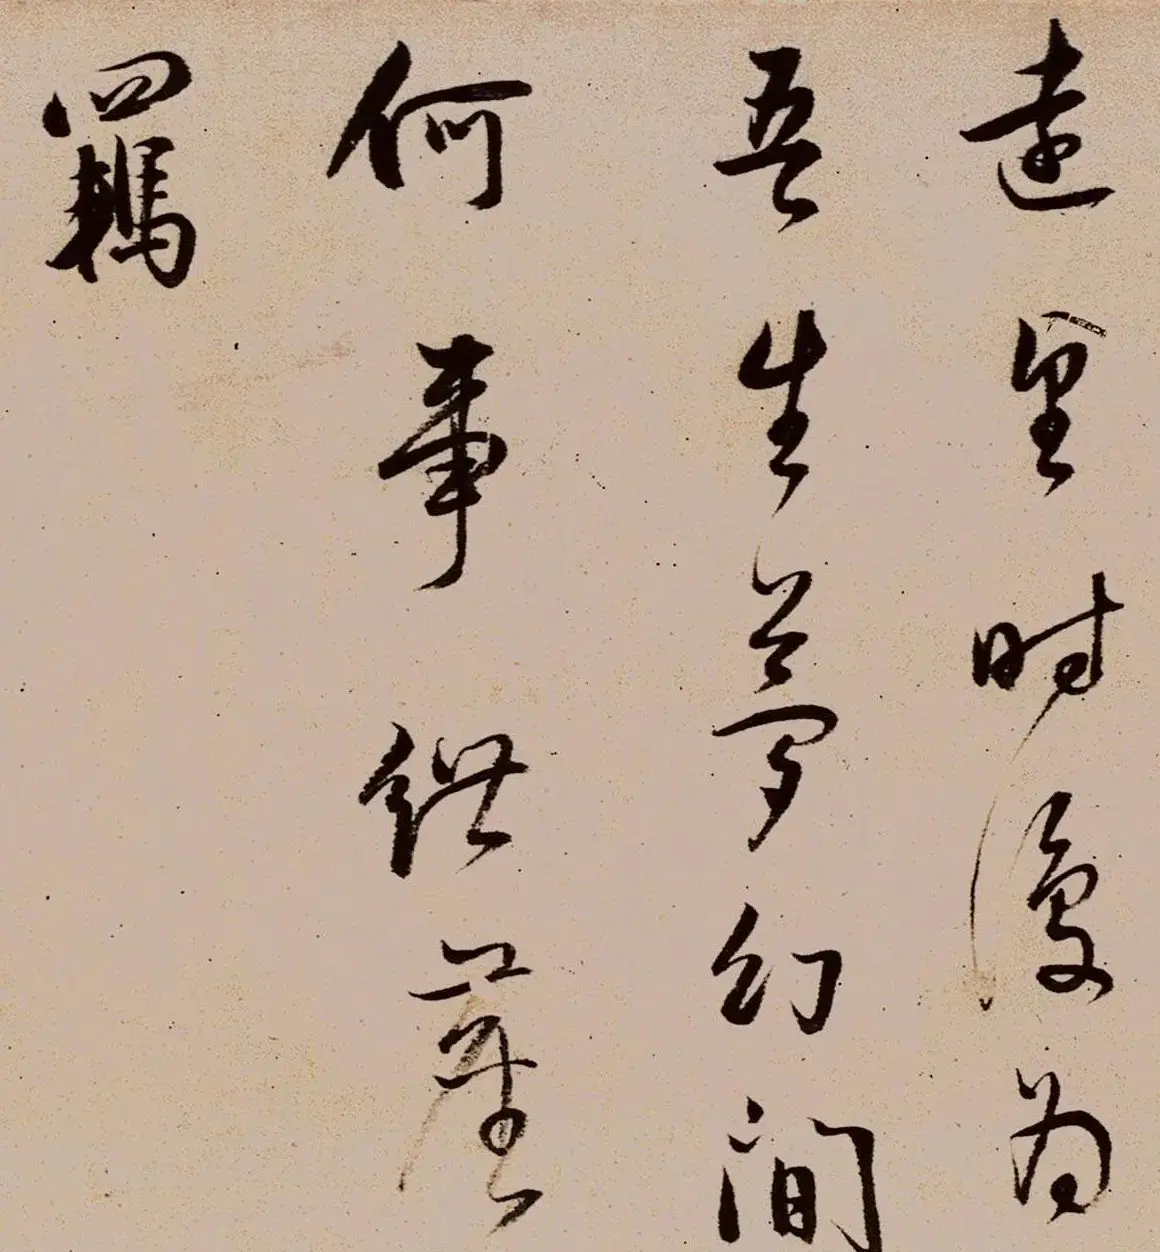 遠望時復為
吾生夢幻間
何事紲塵
羈